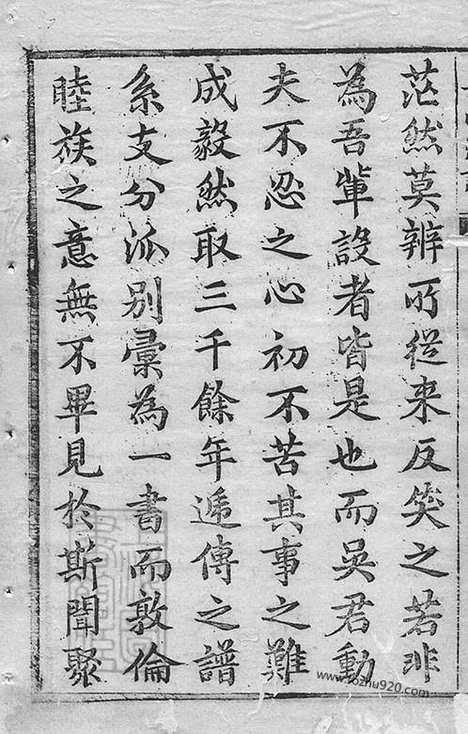 茫然莫辨所從来反笑之若非
為吾軰設者皆是也而吳君動
夫不忍之心初不苦其事之難
成毅然取三千餘年遞傳之譜
系支分派别彙為一書而敦倫
睦族之意無不畢見於斯聞聚
www.fozhu920.com